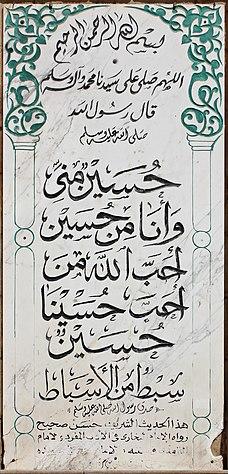 بسم الله الرحمن الرحيم
اللهم صلى على سيدنا محمد وآله وسلم
قال رسول الله
صلى الله عليه وسلم
حُسَين مِنّى
وَأنَا مِن حُسَين
أحَبَّ اللهُ مَن
أحَبَّ حُسَينا
حُسَين
سِبط مِنَ الأسبَاط
صدق رسول الله صلى الله عليه وسلم
هذا الحديث الشريف حسن صحيح
رواه الإمام البخارى فى الأدب المفرد والإمام